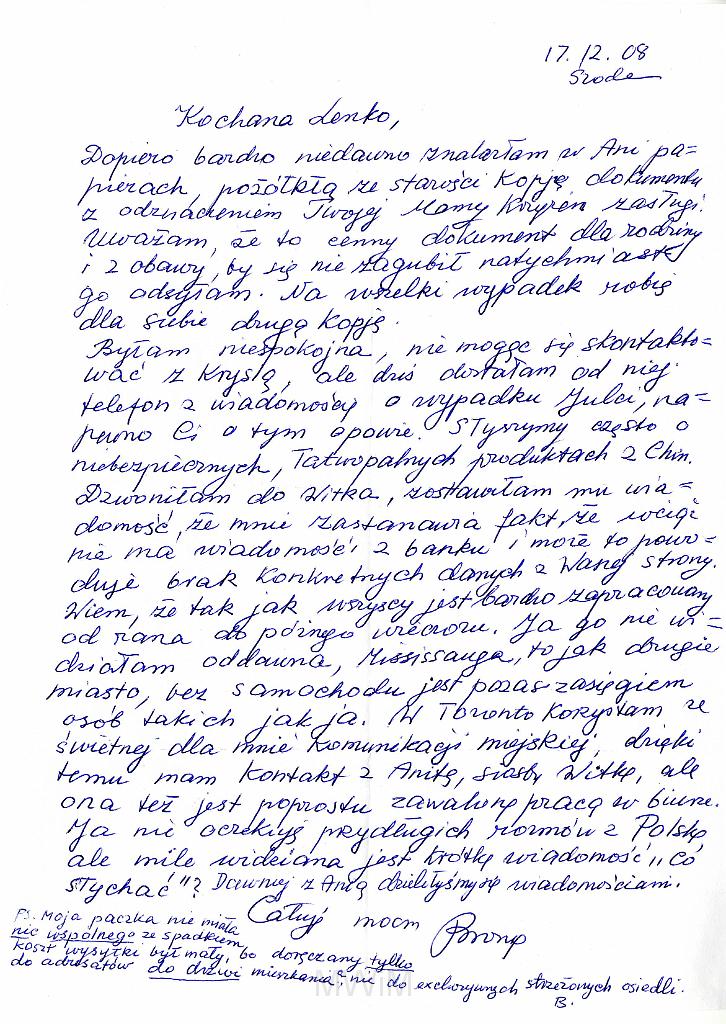 17.12.08
Środa
Kochana Lenko,
Dopiero bardzo niedawno znalazłam w Ani pa=
pierach, pożółkłą ze starości kopję dokumentu
z odznaczeniem Twojej Mamy Krzyżem zasługi.
Uważam, że to cenny dokument dla rodziny
i z obawy, by się nie zagubił natychmiast
go odsyłam. Na wszelki wypadek robię
dla siebie drugą kopję.
Byłam niespokojna, nie mogąc się skontakto=
wać z Krysią, ale dziś dostałam od niej
telefon z wiadomością o wypadku Julci, na=
pewno Ci o tym opowie. Słyszymy często o
niebezpiecznych, łatwopalnych produktach z Chin.
Dzwoniłam do Witka, zostawiłam mu wia=
domość, że mnie zastanawia fakt, że wciąż
nie ma wiadomości z banku i może to powo=
duje brak konkretnych danych z Waszej strony.
Wiem, że tak jak wszyscy jest bardzo zapracowany
od rana do póżnego wieczoru. Ja go nie wi=
działam oddawna, Mississauga, to jak drugie
miasto, bez samochodu jest poza zasięgiem
osób takich jak ja. W Toronto korzystam ze
świetnej dla mnie komunikacji miejskiej, dzięki
temu mam kontakt z Anitą, siostrą Witka, ale
ona też jest poprostu zawalona pracą w biurze.
Ja nie oczekuję przydługich rozmów z Polską
ale mile widziana jest krótka wiadomość „co
słychać"? Dawniej z Anią dzieliłyśmy się wiadomościami.
Całuję mocno
Bronia
PS. Moja paczka nie miała
nic wspólnego ze spadkiem
koszt wysyłki był mały, bo doręczany tylko
do adresatów do drzwi mieszkania, nie do exclusywnych strzeżonych osiedli.
B.
MWiM